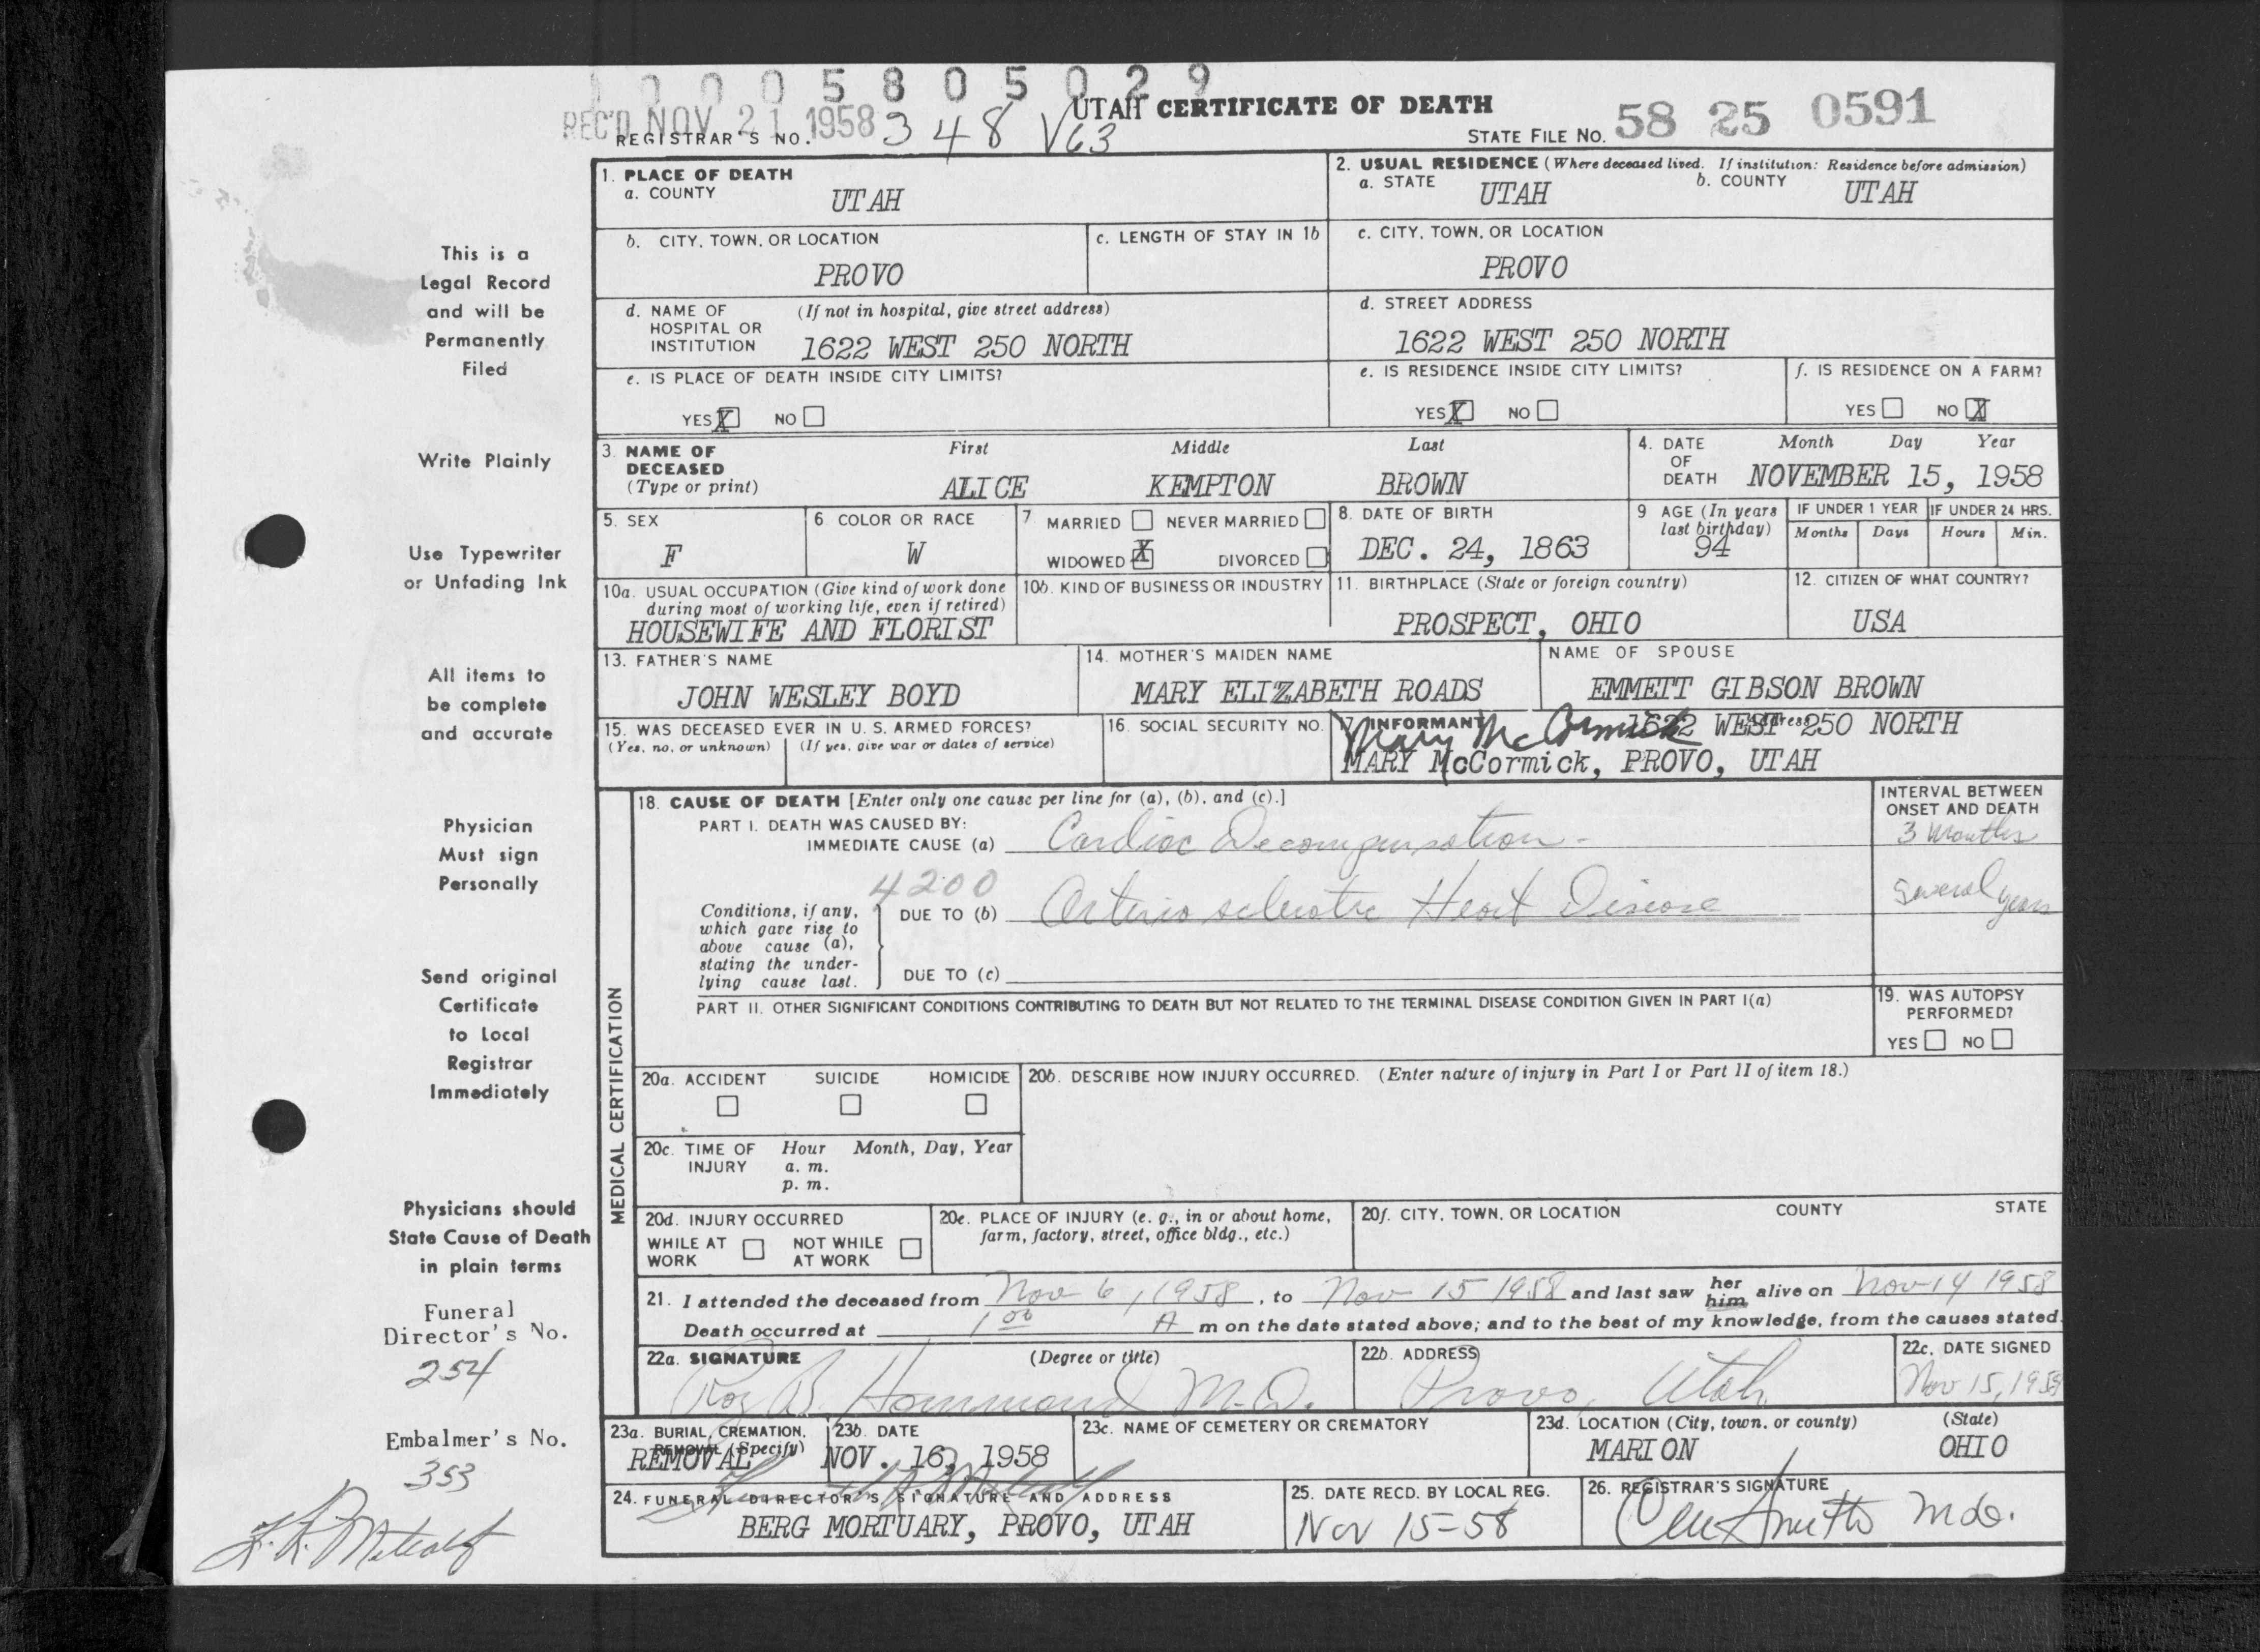 10005805029
REC'D NOV 21 1958
UTAH CERTIFICATE OF DEATH
REGISTRAR'S NO. 348 V63
STATE FILE NO. 58 25 0591
This is a
Legal Record
and will be
Permanently
Filed
Write Plainly
Use Typewriter
or Unfading Ink
All items to
be complete
and accurate
Physician
Must sign
Personally
Send original
Certificate
to Local
Registrar
Immediately
Physicians should
State Cause of Death
in plain terms
Funeral
Director's No.
254
Embalmer's No.
353
1. PLACE OF DEATH
a. COUNTY
UTAH
2. USUAL RESIDENCE (Where deceased lived. If institution: Residence before admission)
a. STATE UTAH b. COUNTY UTAH
b. CITY, TOWN, OR LOCATION
PROVO
c. LENGTH OF STAY IN 1b
c. CITY, TOWN, OR LOCATION
PROVO
d. NAME OF (If not in hospital, give street address)
HOSPITAL OR
INSTITUTION 1622 WEST 250 NORTH
d. STREET ADDRESS
1622 WEST 250 NORTH
e. IS PLACE OF DEATH INSIDE CITY LIMITS?
YES X NO
e. IS RESIDENCE INSIDE CITY LIMITS?
YES X NO
f. IS RESIDENCE ON A FARM?
YES NO X
3. NAME OF DECEASED
(Type or print)
First Middle Last
ALICE KEMPTON BROWN
4. DATE OF DEATH
Month Day Year
NOVEMBER 15, 1958
5. SEX
F
6 COLOR OR RACE
W
7 MARRIED NEVER MARRIED
WIDOWED X DIVORCED
8. DATE OF BIRTH
DEC. 24, 1863
9 AGE (In years
last birthday)
94
IF UNDER 1 YEAR
Months Days
IF UNDER 24 HRS.
Hours Min.
10a. USUAL OCCUPATION (Give kind of work done
during most of working life, even if retired)
HOUSEWIFE AND FLORIST
10b. KIND OF BUSINESS OR INDUSTRY
11. BIRTHPLACE (State or foreign country)
PROSPECT, OHIO
12. CITIZEN OF WHAT COUNTRY?
USA
13. FATHER'S NAME
JOHN WESLEY BOYD
14. MOTHER'S MAIDEN NAME
MARY ELIZABETH ROADS
NAME OF SPOUSE
EMMETT GIBSON BROWN
15. WAS DECEASED EVER IN U. S. ARMED FORCES?
(Yes, no, or unknown) (If yes, give war or dates of service)
16. SOCIAL SECURITY NO.
17. INFORMANT Address
Mary McCormick
1622 WEST 250 NORTH
MARY McCormick, PROVO, UTAH
MEDICAL CERTIFICATION
18. CAUSE OF DEATH [Enter only one cause per line for (a), (b), and (c).]
INTERVAL BETWEEN
ONSET AND DEATH
PART I. DEATH WAS CAUSED BY:
IMMEDIATE CAUSE (a) Cardiac Decompensation - 3 Months
4200
Conditions, if any,
which gave rise to
above cause (a),
stating the under-
lying cause last.
DUE TO (b) Arterio sclerotic Heart Disease Several years
DUE TO (c)
PART II. OTHER SIGNIFICANT CONDITIONS CONTRIBUTING TO DEATH BUT NOT RELATED TO THE TERMINAL DISEASE CONDITION GIVEN IN PART I(a)
19. WAS AUTOPSY
PERFORMED?
YES NO
20a. ACCIDENT SUICIDE HOMICIDE
20b. DESCRIBE HOW INJURY OCCURRED. (Enter nature of injury in Part I or Part II of item 18.)
20c. TIME OF INJURY
Hour Month, Day, Year
a. m.
p. m.
20d. INJURY OCCURRED
WHILE AT WORK NOT WHILE AT WORK
20e. PLACE OF INJURY (e. g., in or about home,
farm, factory, street, office bldg., etc.)
20f. CITY, TOWN, OR LOCATION COUNTY STATE
21. I attended the deceased from Nov 6, 1958, to Nov 15 1958 and last saw her him alive on Nov 14 1958
Death occurred at 1 00 A m on the date stated above; and to the best of my knowledge, from the causes stated.
22a. SIGNATURE (Degree or title)
Roy B. Hammond M.D.
22b. ADDRESS
Provo, Utah
22c. DATE SIGNED
Nov 15, 1958
23a. BURIAL, CREMATION,
REMOVAL (Specify)
REMOVAL
23b. DATE
NOV. 16, 1958
23c. NAME OF CEMETERY OR CREMATORY
23d. LOCATION (City, town, or county) (State)
MARION OHIO
24. FUNERAL DIRECTOR'S SIGNATURE AND ADDRESS
BERG MORTUARY, PROVO, UTAH
25. DATE RECD. BY LOCAL REG.
Nov 15-58
26. REGISTRAR'S SIGNATURE
Smith MD.
F. R. Metcalf